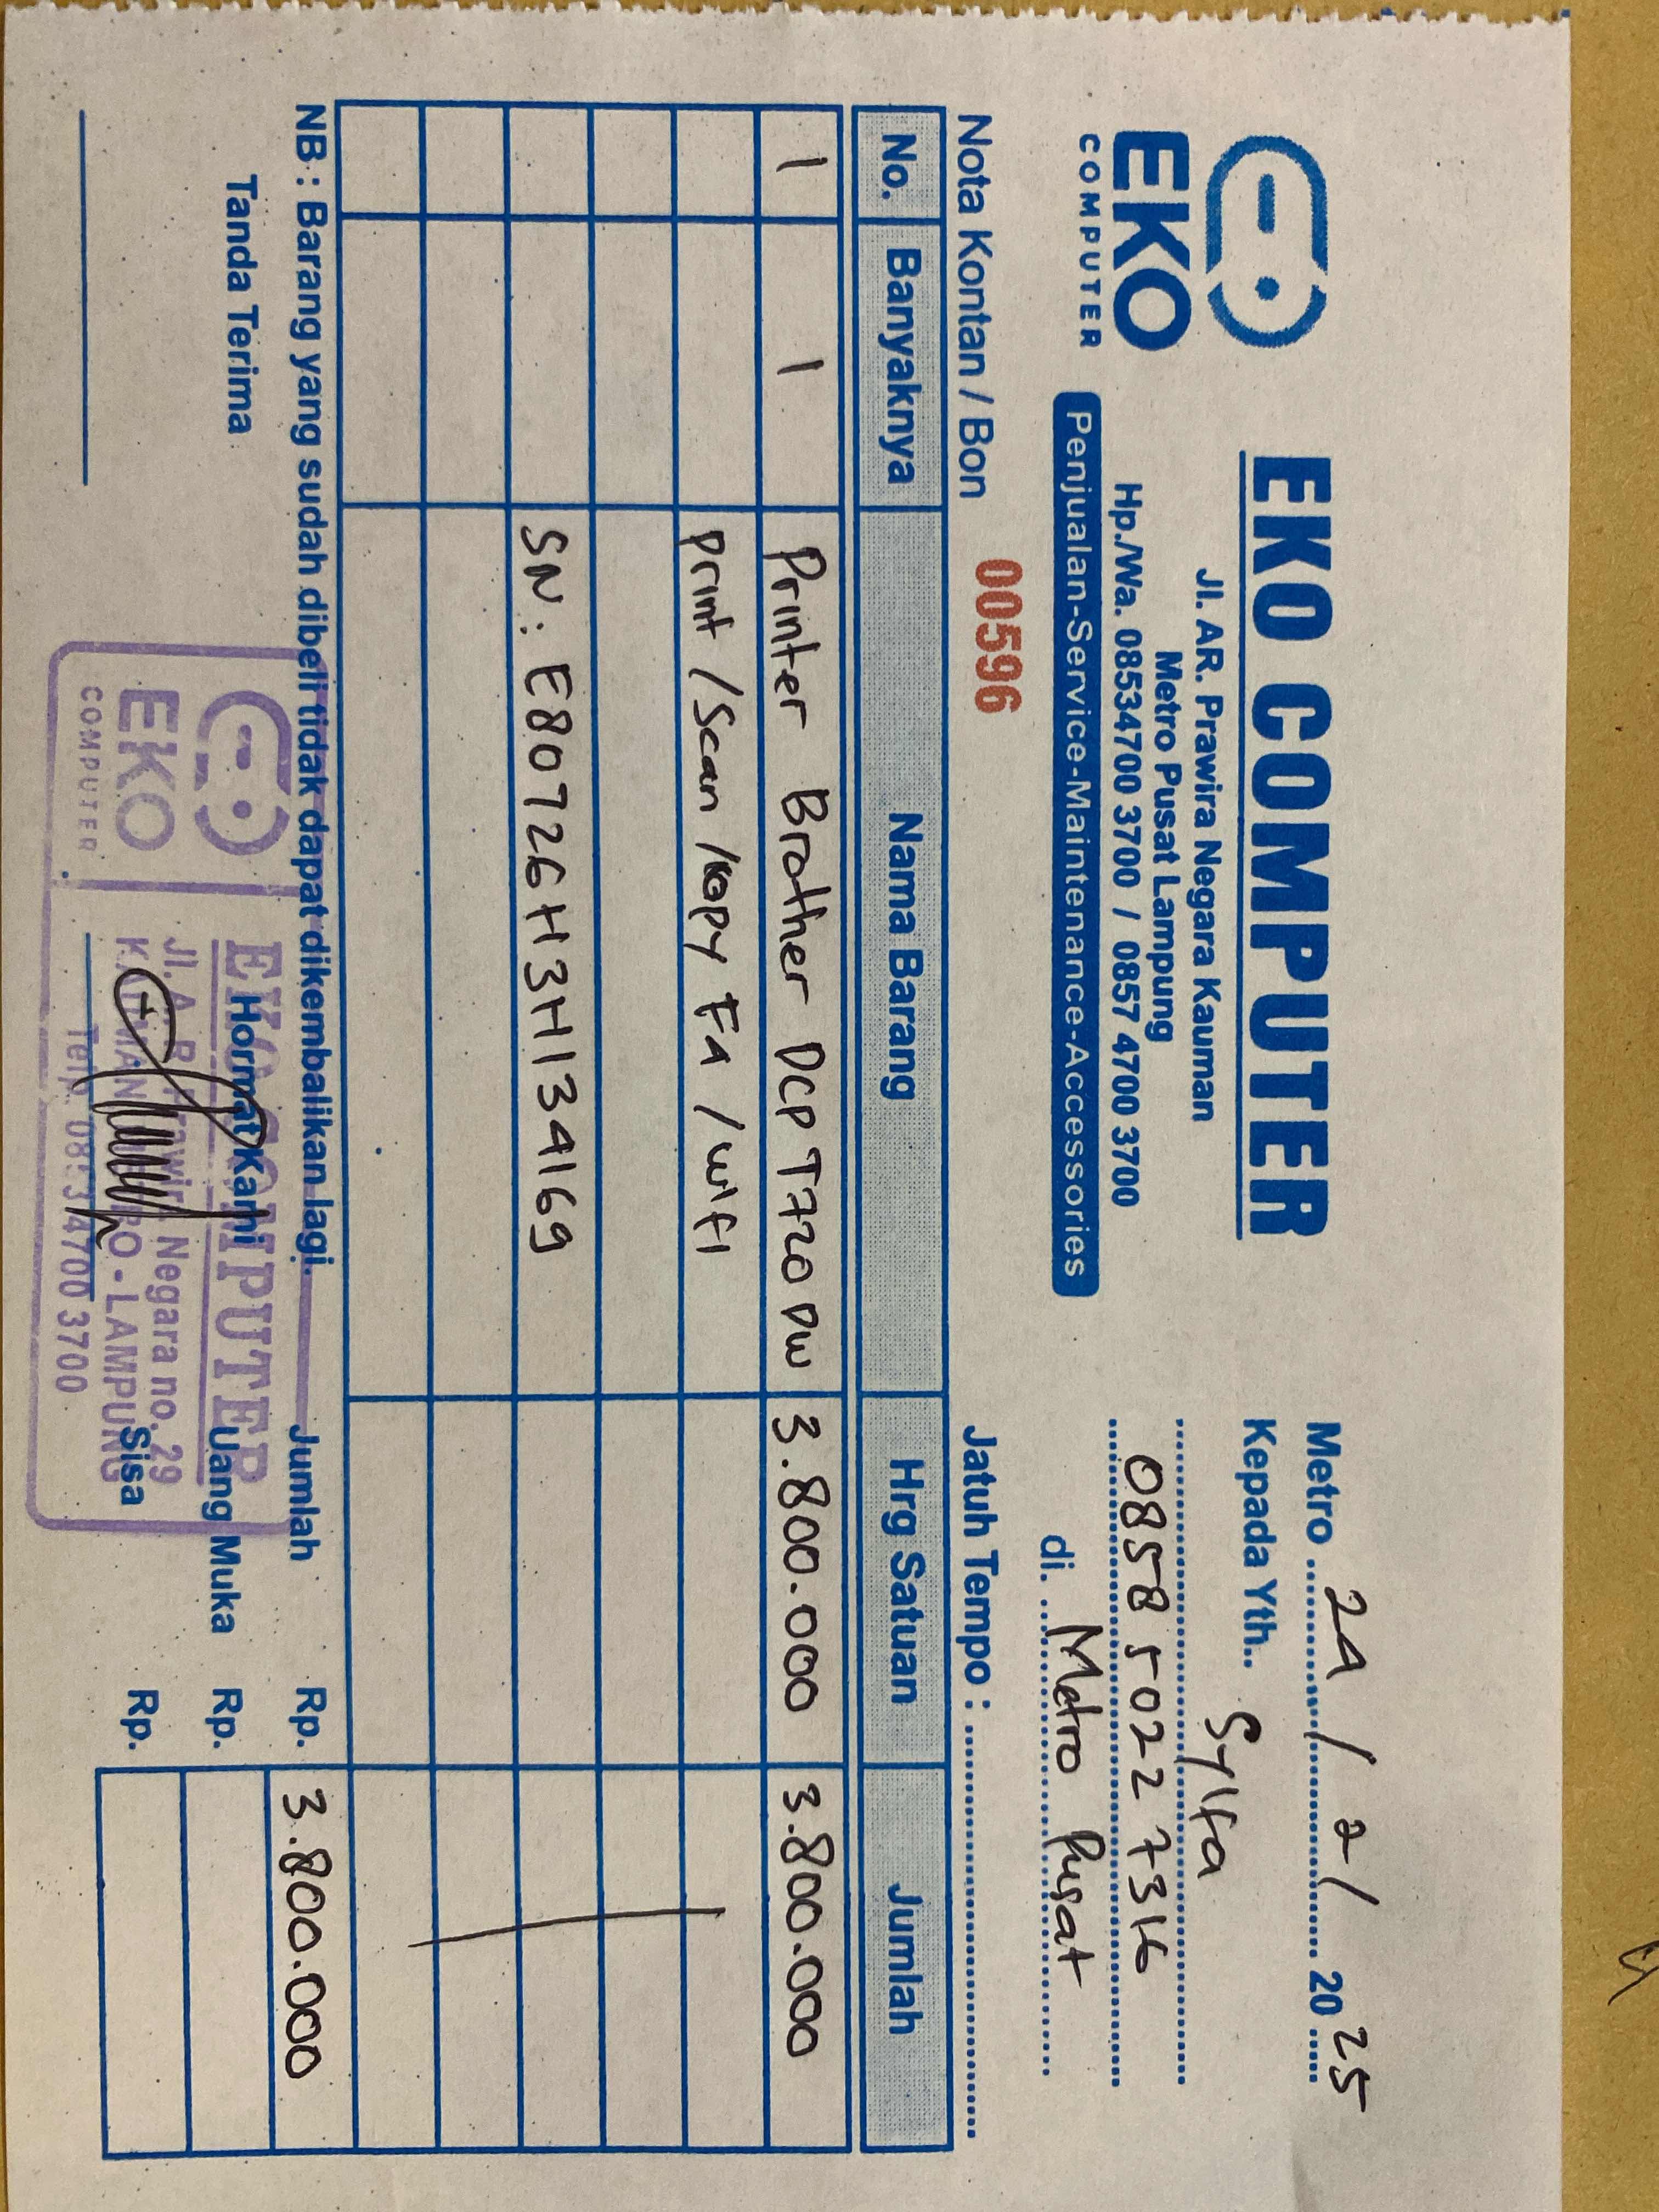 EKO
COMPUTER
EKO COMPUTER
Jl. AR. Prawira Negara Kauman
Metro Pusat Lampung
Hp./Wa. 08534700 3700 / 0857 4700 3700
Penjualan-Service-Maintenance-Accessories
Metro 24 / 2 / 2025
Kepada Yth.. Sylfa
0858 5022 7316
di. Metro Pusat
Nota Kontan / Bon 00596 Jatuh Tempo :
No. Banyaknya Nama Barang Hrg Satuan Jumlah
1 1 Printer Brother DCP T720 DW 3.800.000 3.800.000
Print / Scan / Kopy F4 / wifi
SN : E80726H3H134169
NB : Barang yang sudah dibeli tidak dapat dikembalikan lagi.
Jumlah Rp. 3.800.000
Uang Muka Rp.
Sisa Rp.
Tanda Terima
Hormat Kami
EKO
COMPUTER
EKO COMPUTER
Jl. A.R Prawira Negara no. 29
KAUMAN METRO - LAMPUNG
Telp. 08534700 3700